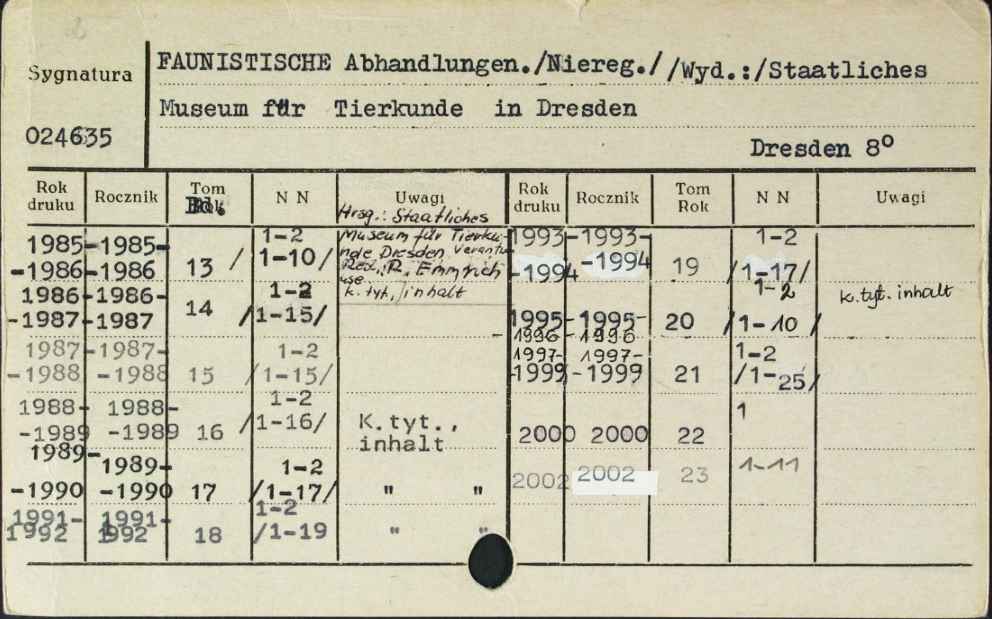 Sygnatura
FAUNISTISCHE Abhandlungen./Niereg.//Wyd.:/Staatliches
Museum für Tierkunde in Dresden
024635
Dresden 8º
Rok druku Rocznik Tom Bd. N N Uwagi Rok druku Rocznik Tom Rok N N Uwagi
Hrsg.: Staatliches
Museum für Tierku-
nde Dresden Verantw
Red., R. Emmrich
use
k. tyt., inhalt
1985- -1985- 1-2
-1986 -1986 13 /1-10/
1986 -1986- 1-2
-1987 -1987 14 /1-15/
1987 -1987- 1-2
-1988 -1988 15 /1-15/
1988- 1988- 1-2
-1989 -1989 16 /1-16/ K.tyt., inhalt
1989- 1989- 1-2
-1990 -1990 17 /1-17/ " "
1991- 1991- 1-2
1992 1992 18 /1-19 " "
1993- -1993- 1-2
-1994 -1994 19 /1-17/
1-2 k.tyt. inhalt
1995- -1995- 20 /1-10/
-1996 -1996
1997- 1997- 1-2
1999 -1999 21 /1-25/
1
2000 2000 22
2002 2002 23 1-11